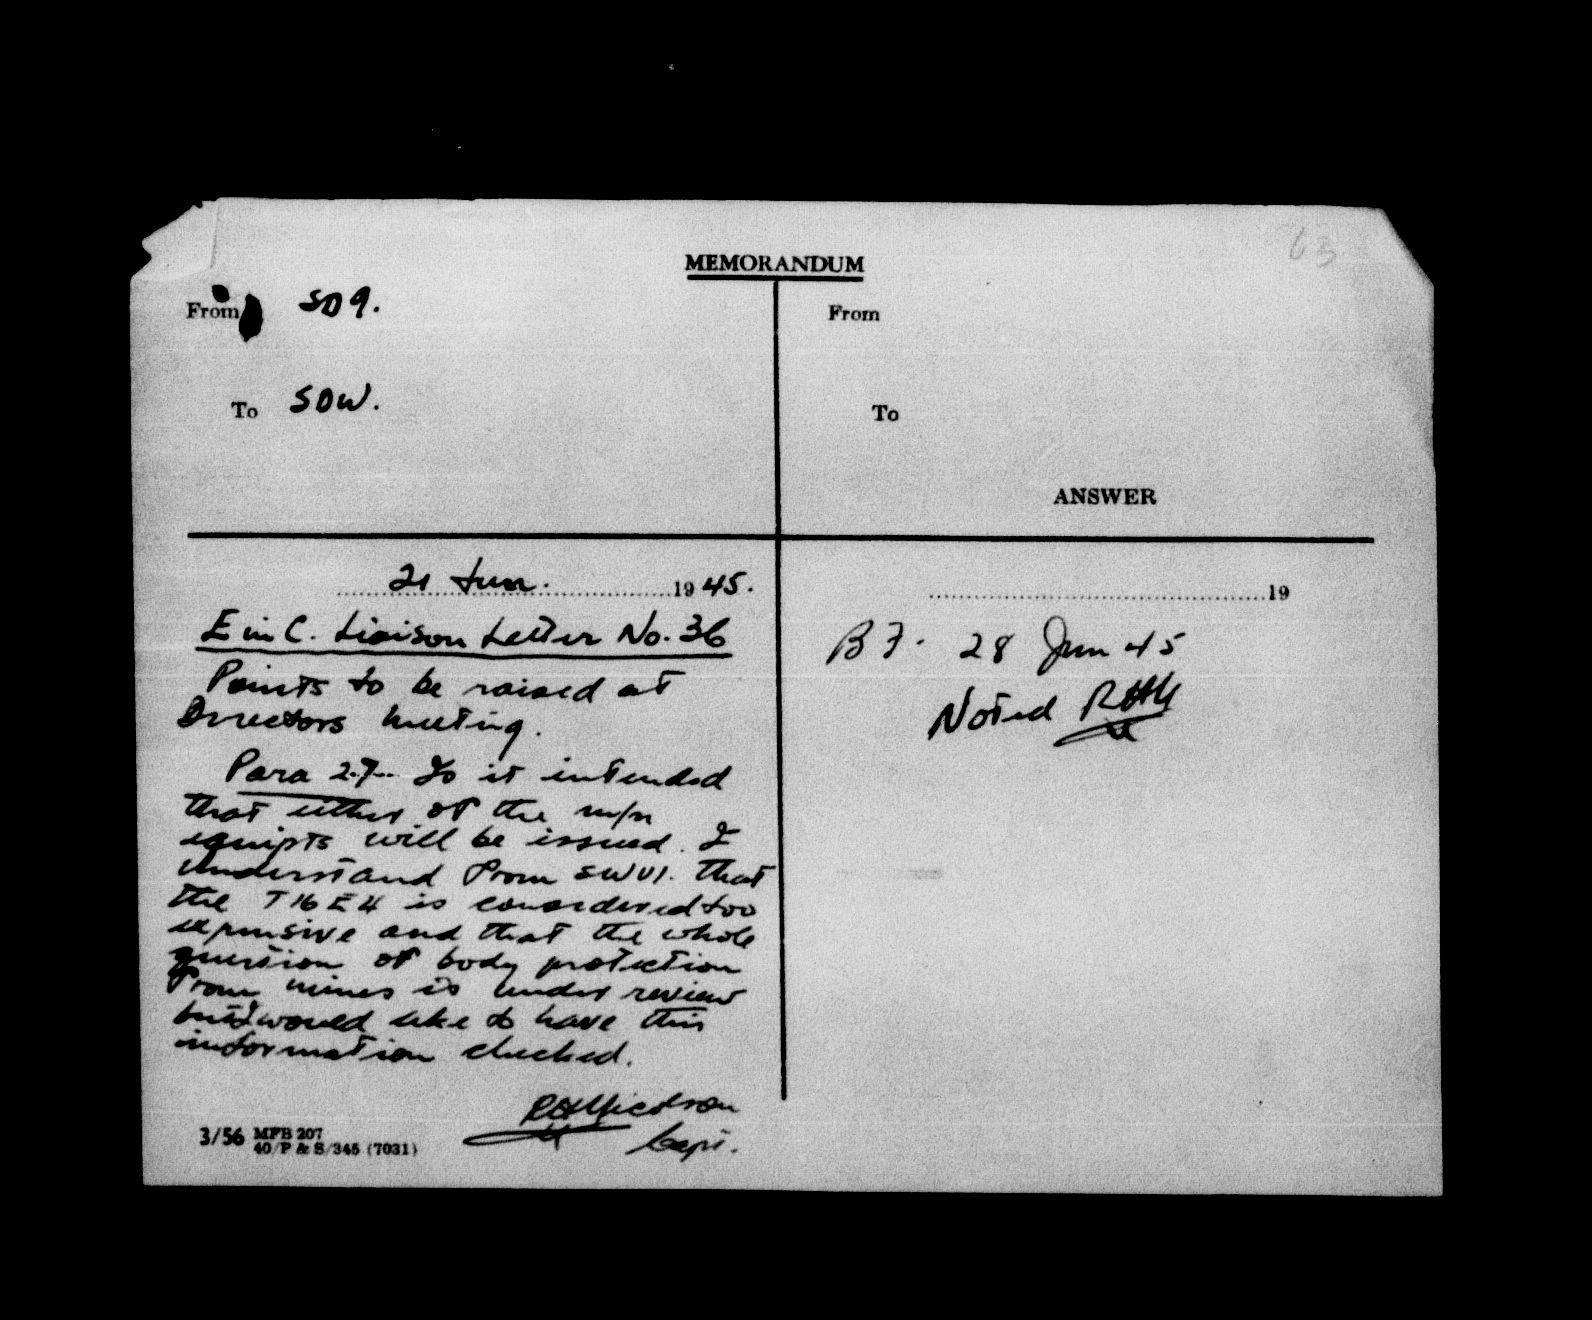 63
MEMORANDUM
From SD9.
To SDW.
From
To
ANSWER
21 Jun. 1945.
E in C. Liaison Letter No. 36
Points to be raised at
Directors meeting.
Para 27. Is it intended
that either of the m/n
equipts will be issued. I
understand from SWV1. that
the T16E4 is considered too
expensive and that the whole
question of body protection
from mines is under review
but I would like to have this
information checked.
Capt.
3/56 MFB 207
40/P & S/345 (7031)
19
B F. 28 Jun 45
Noted